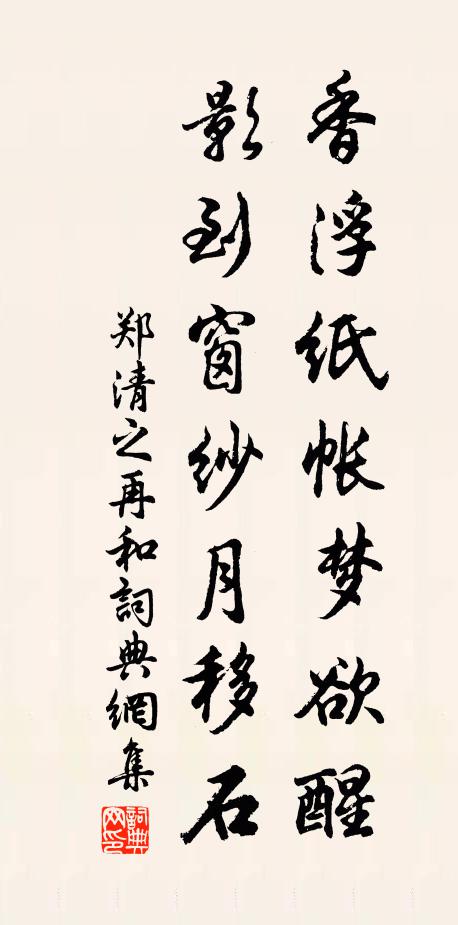 香浮紙帐梦欲醒
影到窗纱月移石
郑清之再和詞典網集
詞典網印